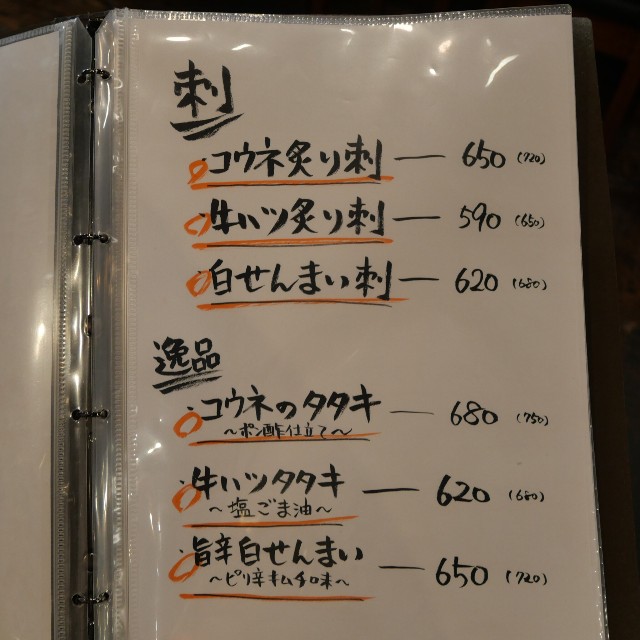 刺
・コウネ炙り刺 — 650 (720)
・牛ハツ炙り刺 — 590 (650)
・白せんまい刺 — 620 (680)
逸品
・コウネのタタキ — 680 (750)
～ポン酢仕立て～
・牛ハツタタキ — 620 (680)
～塩ごま油～
・旨辛白せんまい — 650 (720)
～ピリ辛キムチ味～